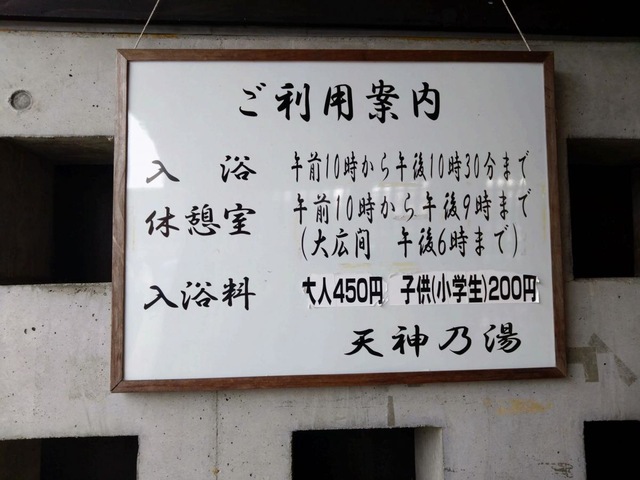 ご利用案内
入 浴 午前10時から午後10時30分まで
休憩室 午前10時から午後9時まで
(大広間 午後6時まで)
入浴料 大人450円 子供(小学生)200円
天神乃湯